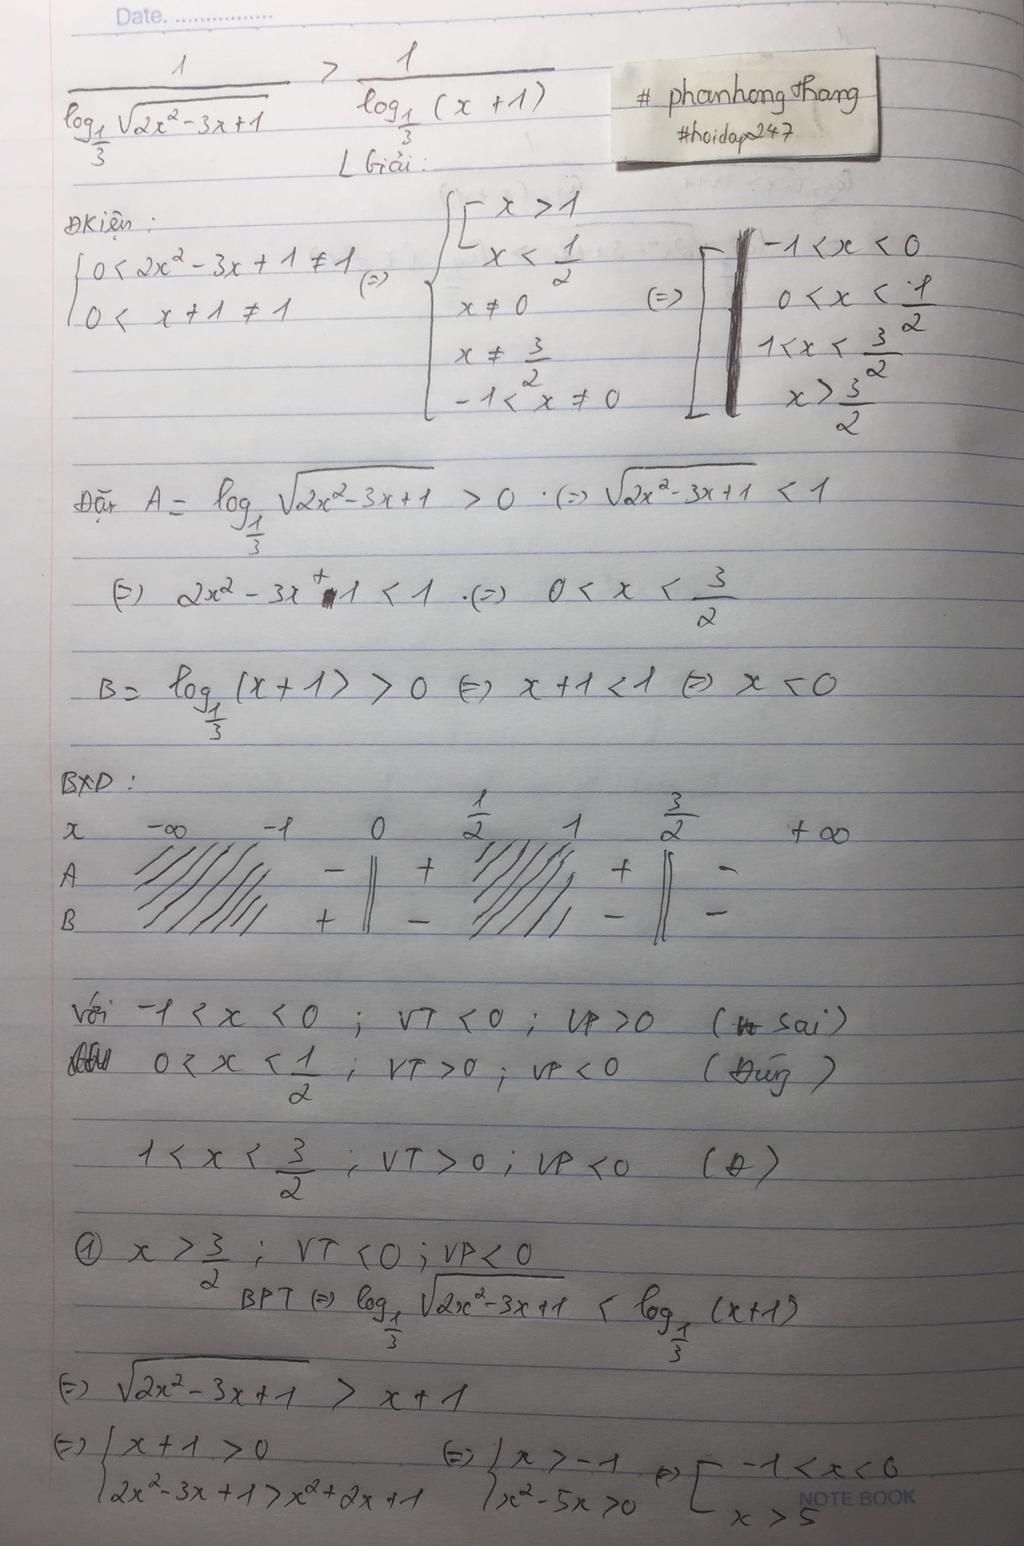 Date. ................
1/(log_{1/3} √(2x² - 3x + 1)) > 1/(log_{1/3} (x + 1))
# phanhongthang
#hoidap247
Giải:
ĐKiện:
{ 0 < 2x² - 3x + 1 ≠ 1
{ 0 < x + 1 ≠ 1
(=)
{ [ x > 1
[ x < 1/2
x ≠ 0
x ≠ 3/2
-1 < x ≠ 0
(=)
[ -1 < x < 0
0 < x < 1/2
1 < x < 3/2
x > 3/2
Đặt A = log_{1/3} √(2x² - 3x + 1) > 0 . (=) √(2x² - 3x + 1) < 1
(=) 2x² - 3x + 1 < 1 . (=) 0 < x < 3/2
B = log_{1/3} (x + 1) > 0 (=) x + 1 < 1 (=) x < 0
BXD :
x -∞ -1 0 1/2 1 3/2 +∞
A - || + + || -
B + || - - || -
Với -1 < x < 0 ; VT < 0 ; VP > 0 (sai)
0 < x < 1/2 ; VT > 0 ; VP < 0 (Đúng)
1 < x < 3/2 ; VT > 0 ; VP < 0 (Đ)
① x > 3/2 ; VT < 0 ; VP < 0
BPT (=) log_{1/3} √(2x² - 3x + 1) < log_{1/3} (x + 1)
(=) √(2x² - 3x + 1) > x + 1
(=) { x + 1 > 0 (=) { x > -1 (=) [ -1 < x < 0
{ 2x² - 3x + 1 > x² + 2x + 1 { x² - 5x > 0 [ x > 5
NOTE BOOK